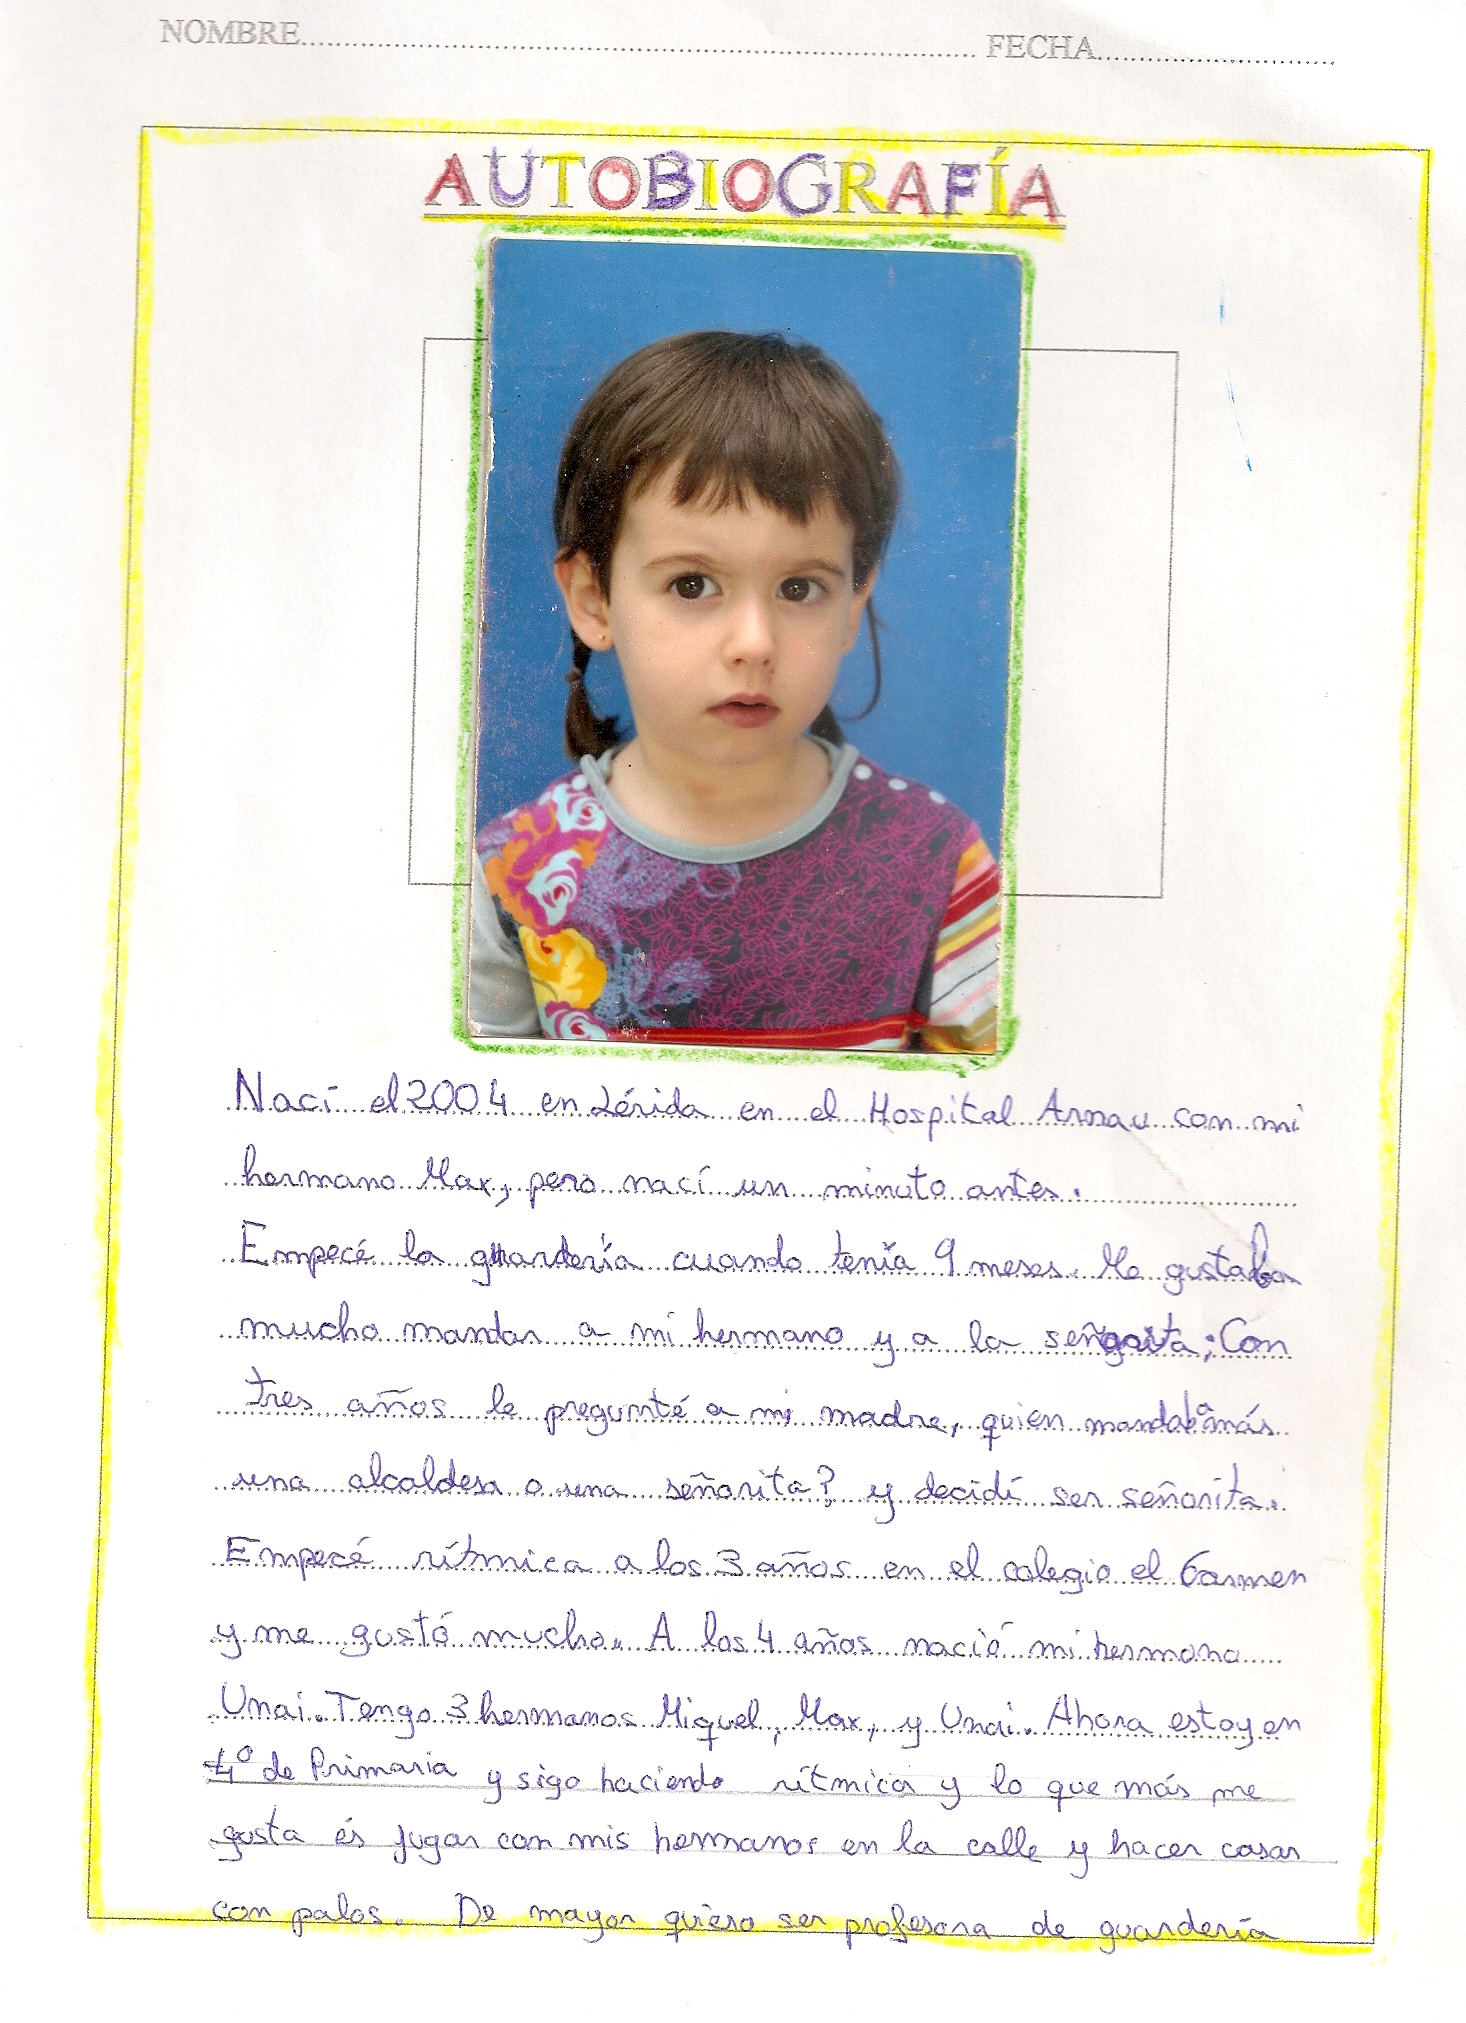 NOMBRE.......................................................................................... FECHA................................
AUTOBIOGRAFÍA
Nací el 2004 en Lérida en el Hospital Arnau con mi
hermano Max, pero nací un minuto antes.
Empecé la guardería cuando tenía 9 meses. Me gustaba
mucho mandar a mi hermano y a la señorita; Con
tres años le pregunté a mi madre, quien mandaba más
una alcaldesa o una señorita? y decidí ser señorita.
Empecé rítmica a los 3 años en el colegio el Carmen
y me gustó mucho. A los 4 años nació mi hermano
Unai. Tengo 3 hermanos Miquel, Max, y Unai. Ahora estoy en
4º de Primaria y sigo haciendo rítmica y lo que más me
gusta és jugar con mis hermanos en la calle y hacer casas
con palos. De mayor quiero ser profesora de guardería